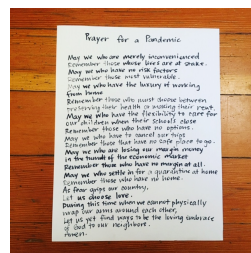 Prayer for a Pandemic
May we who are merely inconvenienced
Remember those whose lives are at stake.
May we who have no risk factors
Remember those most vulnerable.
May we who have the luxury of working
from home
Remember those who must choose between
preserving their health or making their rent.
May we who have the flexibility to care for
our children when their schools close
Remember those who have no options.
May we who have to cancel our trips
Remember those that have no safe place to go.
May we who are losing our margin money
in the tumult of the economic market
Remember those who have no margin at all.
May we who settle in for a quarantine at home
Remember those who have no home.
As fear grips our country,
Let us choose love.
During this time when we cannot physically
wrap our arms around each other,
Let us yet find ways to be the loving embrace
of God to our neighbors.
Amen.